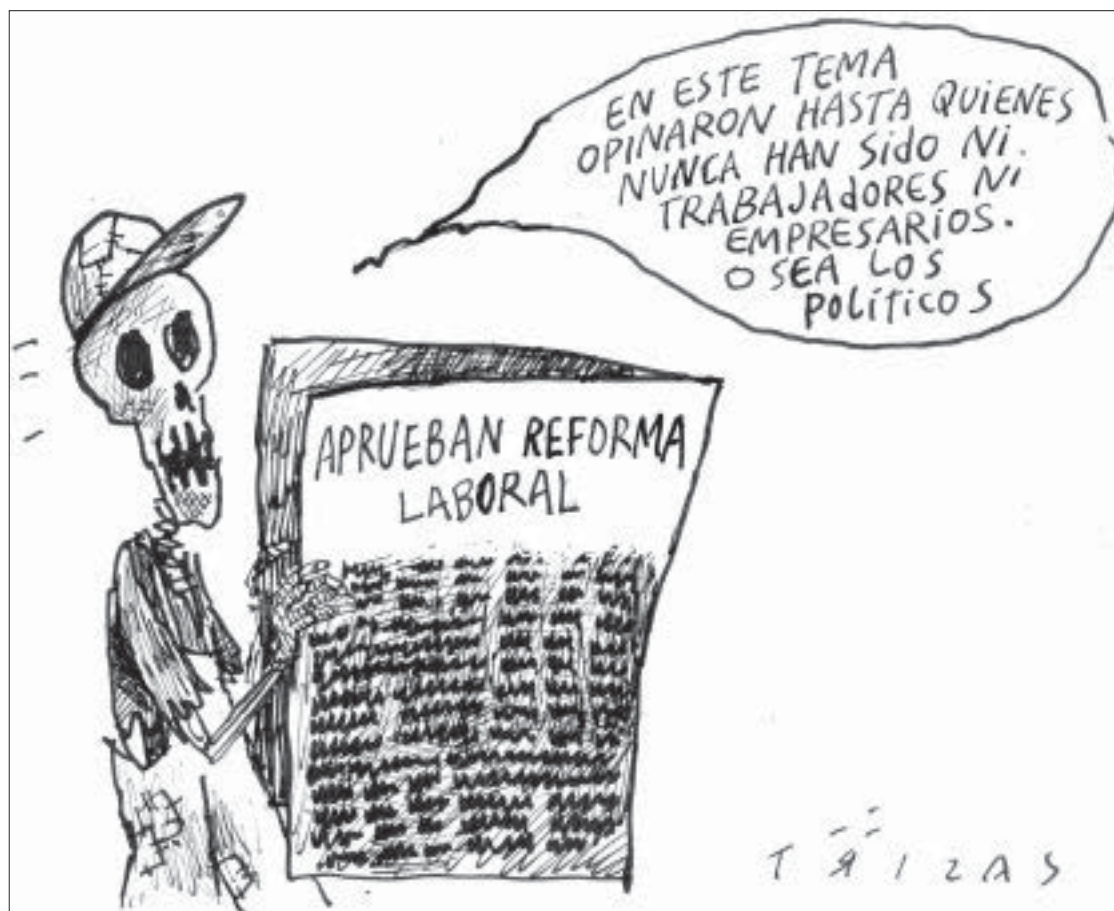 EN ESTE TEMA
OPINARON HASTA QUIENES
NUNCA HAN SIDO NI
TRABAJADORES NI
EMPRESARIOS.
O SEA LOS
POLÍTICOS
APRUEBAN REFORMA
LABORAL
TRIZAS